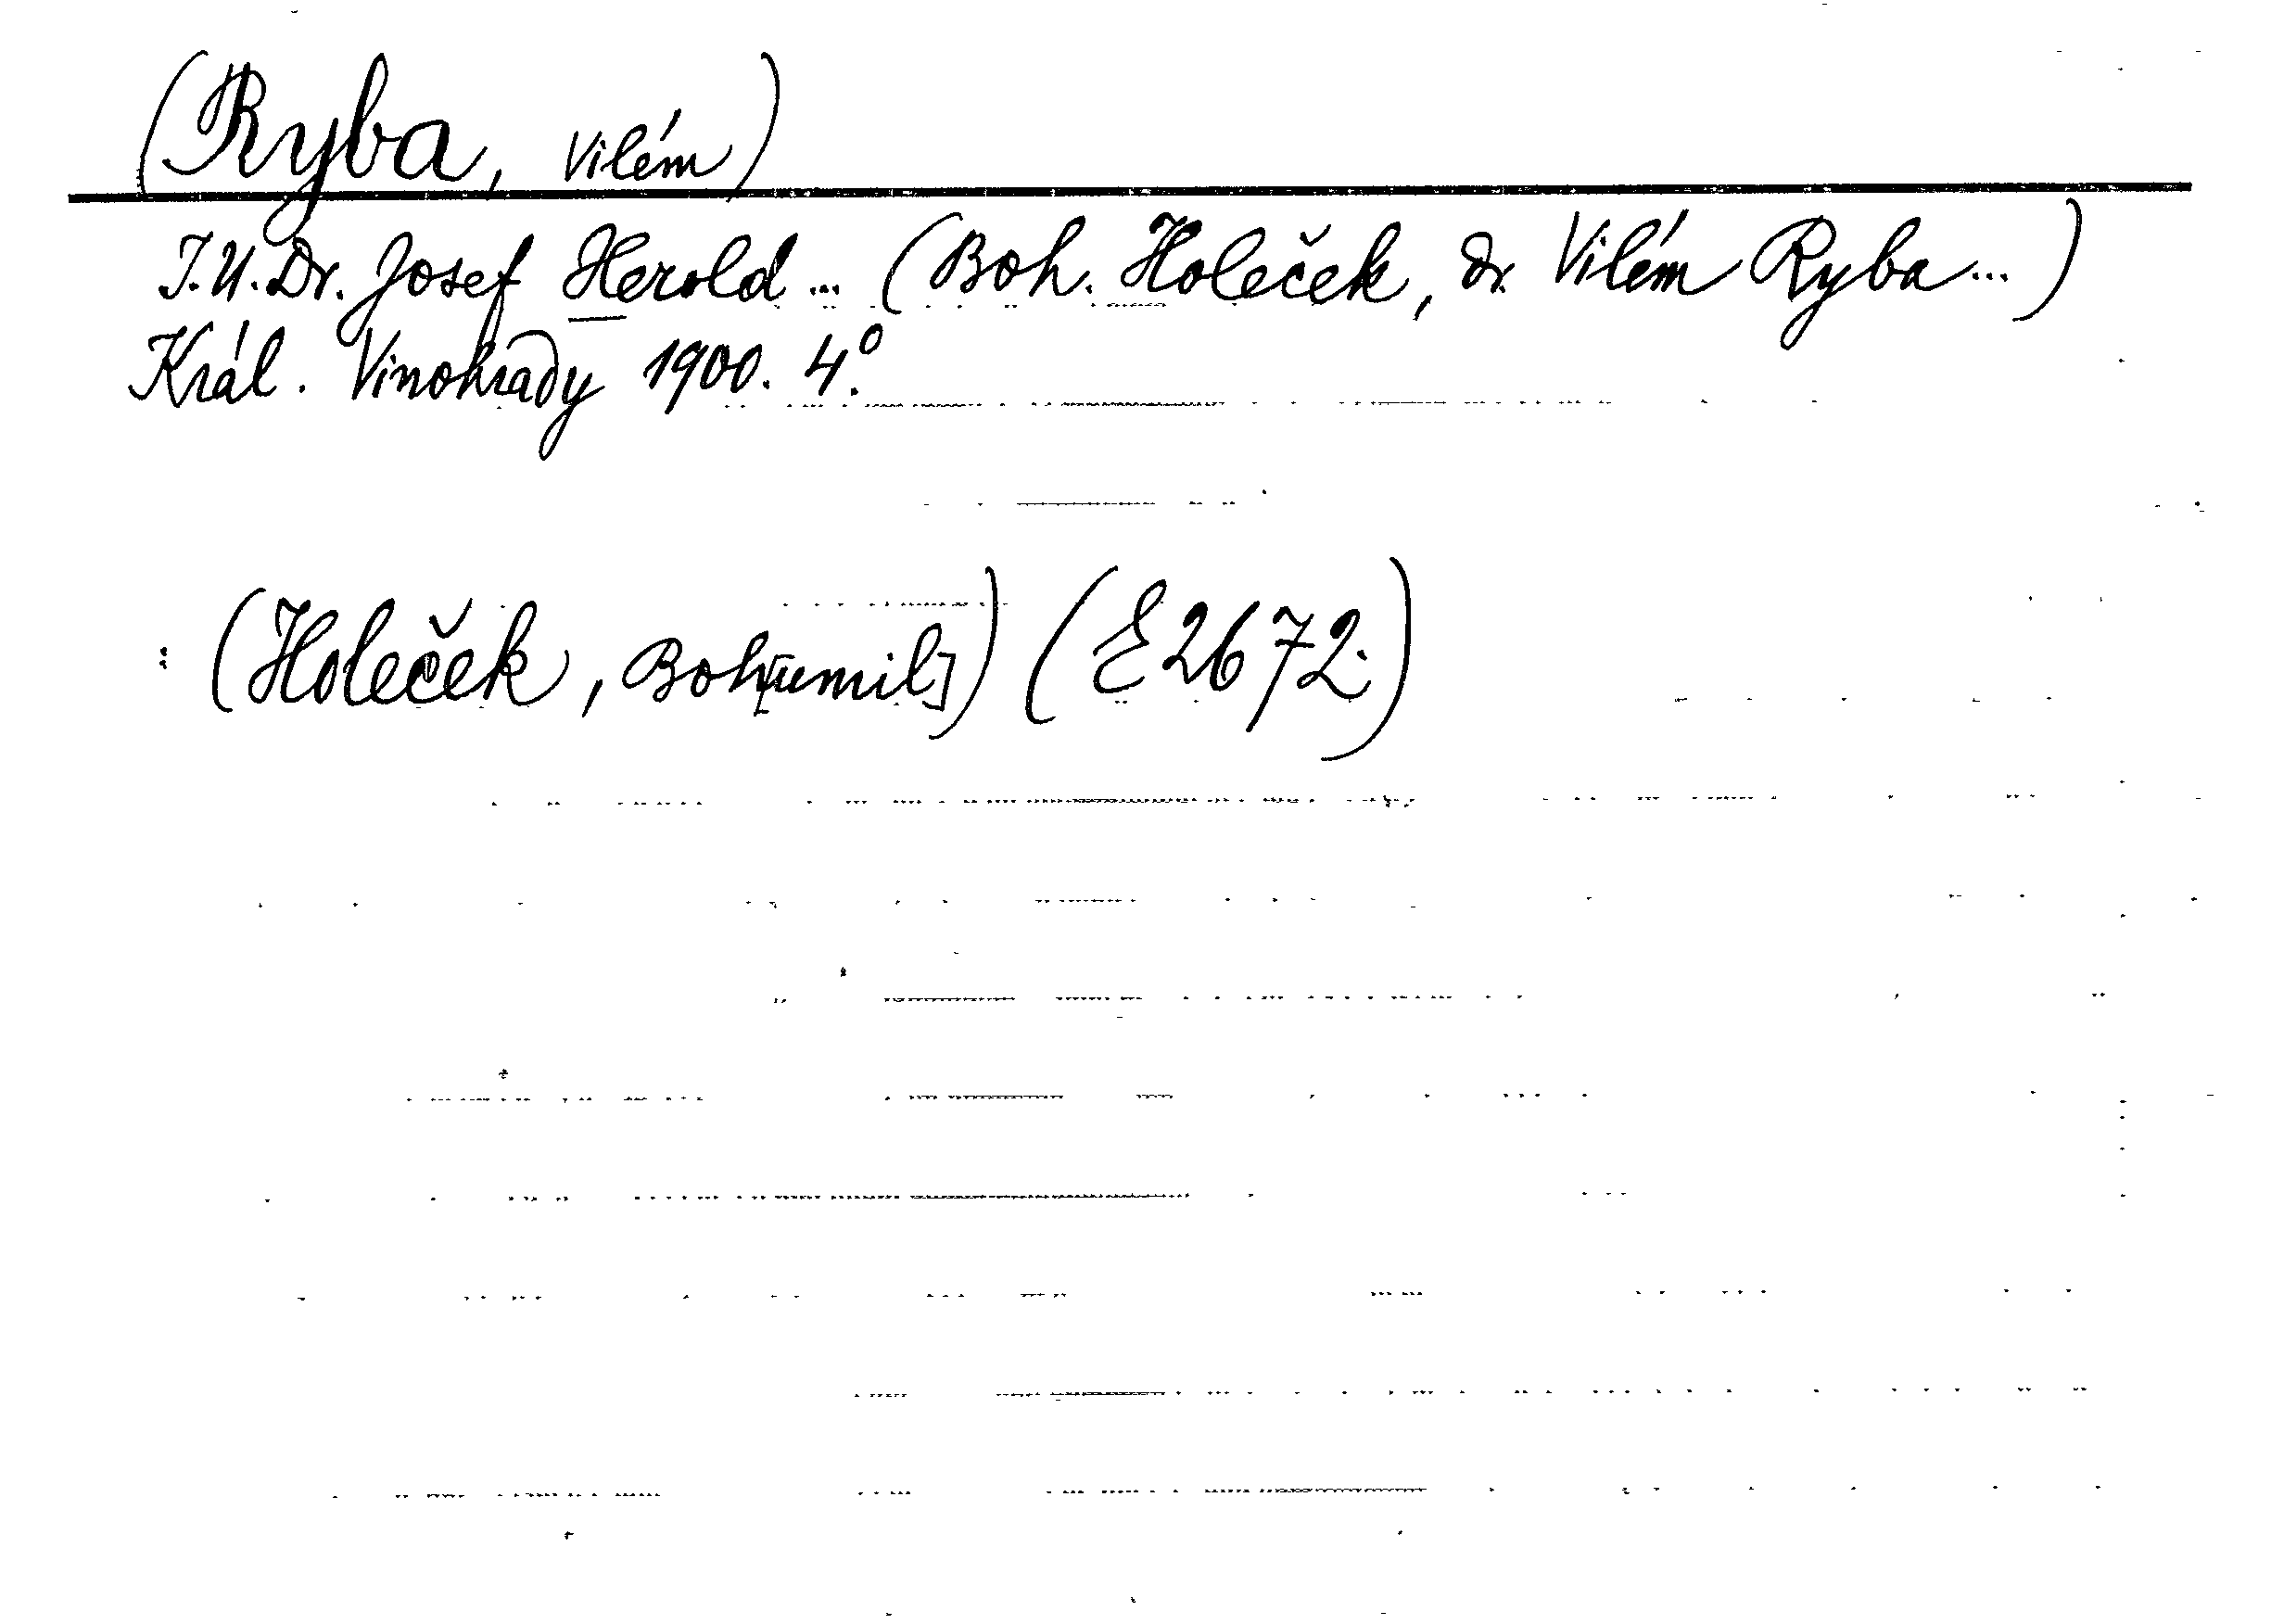 (Ryba, Vilém)
J.U.Dr. Josef Herold ... (Boh. Holeček, dr. Vilém Ryba ...)
Král. Vinohrady 1900. 4.°
: (Holeček, Boh[umil]) (E 2672.)